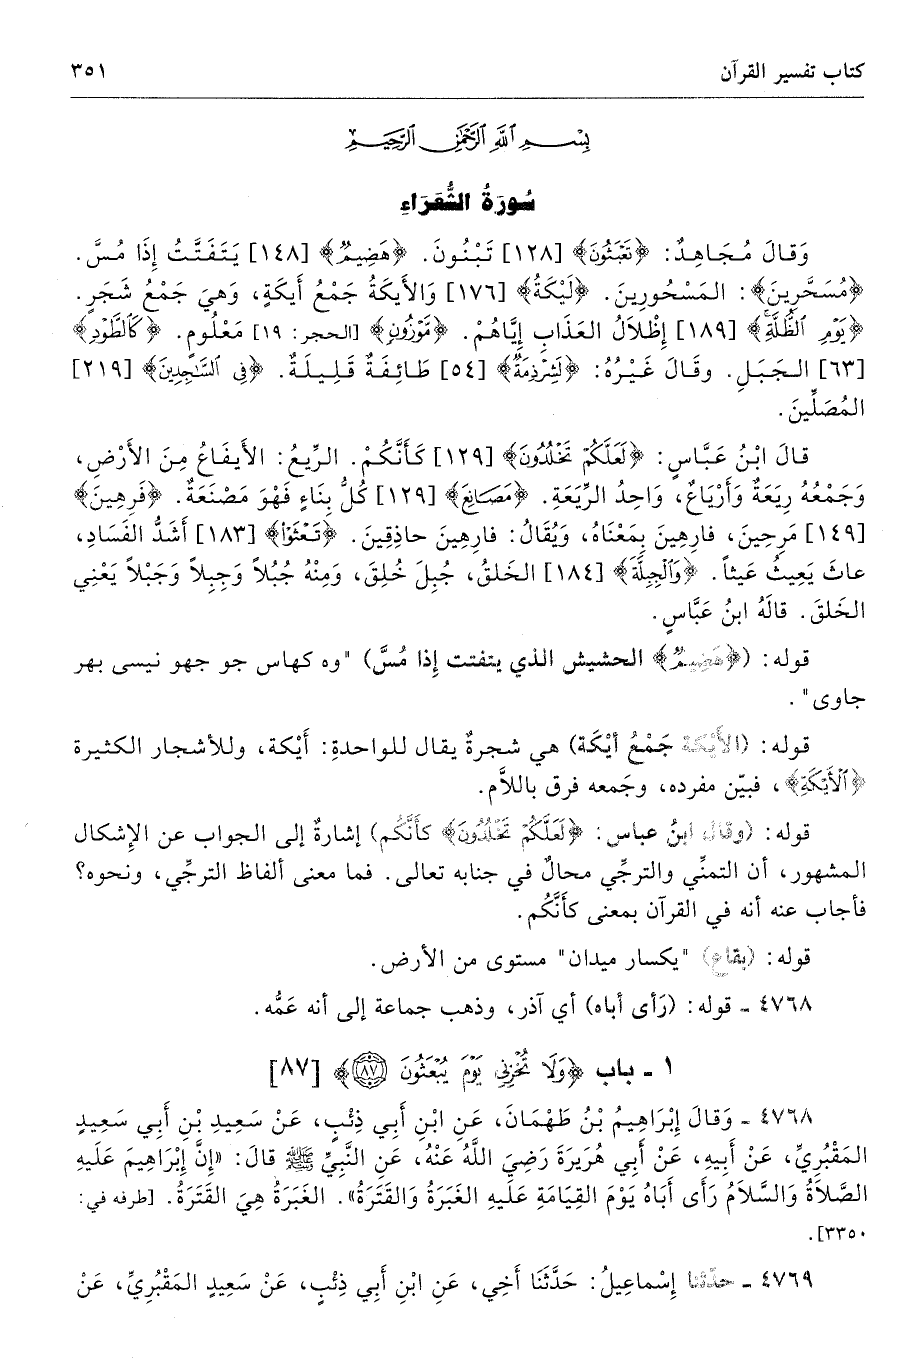 كتاب تفسير القرآن ٣٥١
بِسْمِ ٱللَّهِ ٱلرَّحْمَٰنِ ٱلرَّحِيمِ
سُورَةُ الشُّعَرَاءِ
وَقالَ مُجَاهِدٌ: ﴿تَعْبَثُونَ﴾ [١٢٨] تَبْنُونَ. ﴿هَضِيمٌ﴾ [١٤٨] يَتَفَتَّتُ إِذَا مُسَّ.
﴿مُسَحَّرِينَ﴾: المَسْحُورِينَ. ﴿لَيْكَةُ﴾ [١٧٦] وَالأَيكَةُ جَمْعُ أَيكَةٍ، وَهيَ جَمْعُ شَجَرٍ.
﴿يَوْمِ ٱلظُّلَّةِ﴾ [١٨٩] إِظْلاَلُ العَذَابِ إِيَّاهُمْ. ﴿مَوْزُونٍ﴾ [الحجر: ١٩] مَعْلُومٍ. ﴿كَٱلطَّوْدِ﴾
[٦٣] الجَبَلِ. وَقالَ غَيْرُهُ: ﴿لَشِرْذِمَةٌ﴾ [٥٤] طَائِفَةٌ قَلِيلَةٌ. ﴿فِى ٱلسَّٰجِدِينَ﴾ [٢١٩]
المُصَلِّينَ.
قالَ ابْنُ عَبَّاسٍ: ﴿لَعَلَّكُمْ تَخْلُدُونَ﴾ [١٢٩] كَأَنَّكُمْ. الرِّيعُ: الأَيفَاعُ مِنَ الأَرْضِ،
وَجَمْعُهُ رِيَعَةٌ وَأَرْيَاعٌ، وَاحِدُ الرِّيَعَةِ. ﴿مَصَانِعَ﴾ [١٢٩] كُلُّ بِنَاءٍ فَهْوَ مَصْنَعَةٌ. ﴿فَرِهِينَ﴾
[١٤٩] مَرِحِينَ، فارِهِينَ بِمَعْنَاهُ، وَيُقَالُ: فارِهِينَ حاذِقِينَ. ﴿تَعْثَوْا۟﴾ [١٨٣] أَشَدُّ الفَسَادِ،
عاثَ يَعِيثُ عَيثاً. ﴿وَٱلْجِبِلَّةَ﴾ [١٨٤] الخَلقُ، جُبِلَ خُلِقَ، وَمِنْهُ جُبُلاً وَجِبِلاً وَجُبْلاً يَعْنِي
الخَلقَ. قالَهُ ابنُ عَبَّاسٍ.
قوله: (﴿هَضِيمٌ﴾ الحشيش الذي يتفتت إِذا مُسَّ) "وه كهاس جو جهو نيسى بهر
جاوى".
قوله: (الأَيْكَة جَمْعُ أَيْكَة) هي شجرةٌ يقال للواحدةِ: أَيْكة، وللأشجار الكثيرة
﴿ٱلْأَيْكَةِ﴾، فبيّن مفرده، وجَمعه فرق باللاَّم.
قوله: (وقال ابنُ عباس: ﴿لَعَلَّكُمْ تَخْلُدُونَ﴾ كأنَّكُم) إشارةٌ إلى الجواب عن الإِشكال
المشهور، أن التمنِّي والترجِّي محالٌ في جنابه تعالى. فما معنى ألفاظ الترجِّي، ونحوه؟
فأجاب عنه أنه في القرآن بمعنى كأَنَّكُم.
قوله: (بقاع) "يكسار ميدان" مستوى من الأرض.
٤٧٦٨ ـ قوله: (رَأى أباه) أي آذر، وذهب جماعة إلى أنه عَمُّه.
١ ـ باب ﴿وَلَا تُخْزِنِى يَوْمَ يُبْعَثُونَ ۝٨٧﴾ [٨٧]
٤٧٦٨ ـ وَقالَ إِبْرَاهِيمُ بْنُ طَهْمَانَ، عَنِ ابْنِ أَبِي ذِئْبٍ، عَنْ سَعِيدِ بْنِ أَبِي سَعِيدٍ
المَقْبُرِيِّ، عَنْ أَبِيهِ، عَنْ أَبِي هُرَيرَةَ رَضِيَ اللَّهُ عَنْهُ، عَنِ النَّبِيِّ ﷺ قالَ: «إِنَّ إِبْرَاهِيمَ عَلَيهِ
الصَّلاَةُ وَالسَّلاَمُ رَأَى أَبَاهُ يَوْمَ القِيَامَةِ عَلَيهِ الغَبَرَةُ وَالقَتَرَةُ». الغَبَرَةُ هِيَ القَتَرَةُ. [طرفه في:
٣٣٥٠].
٤٧٦٩ ـ حدّثنا إِسْماعِيلُ: حَدَّثَنَا أَخِي، عَنِ ابْنِ أَبِي ذِئْبٍ، عَنْ سَعِيدٍ المَقْبُرِيِّ، عَنْ